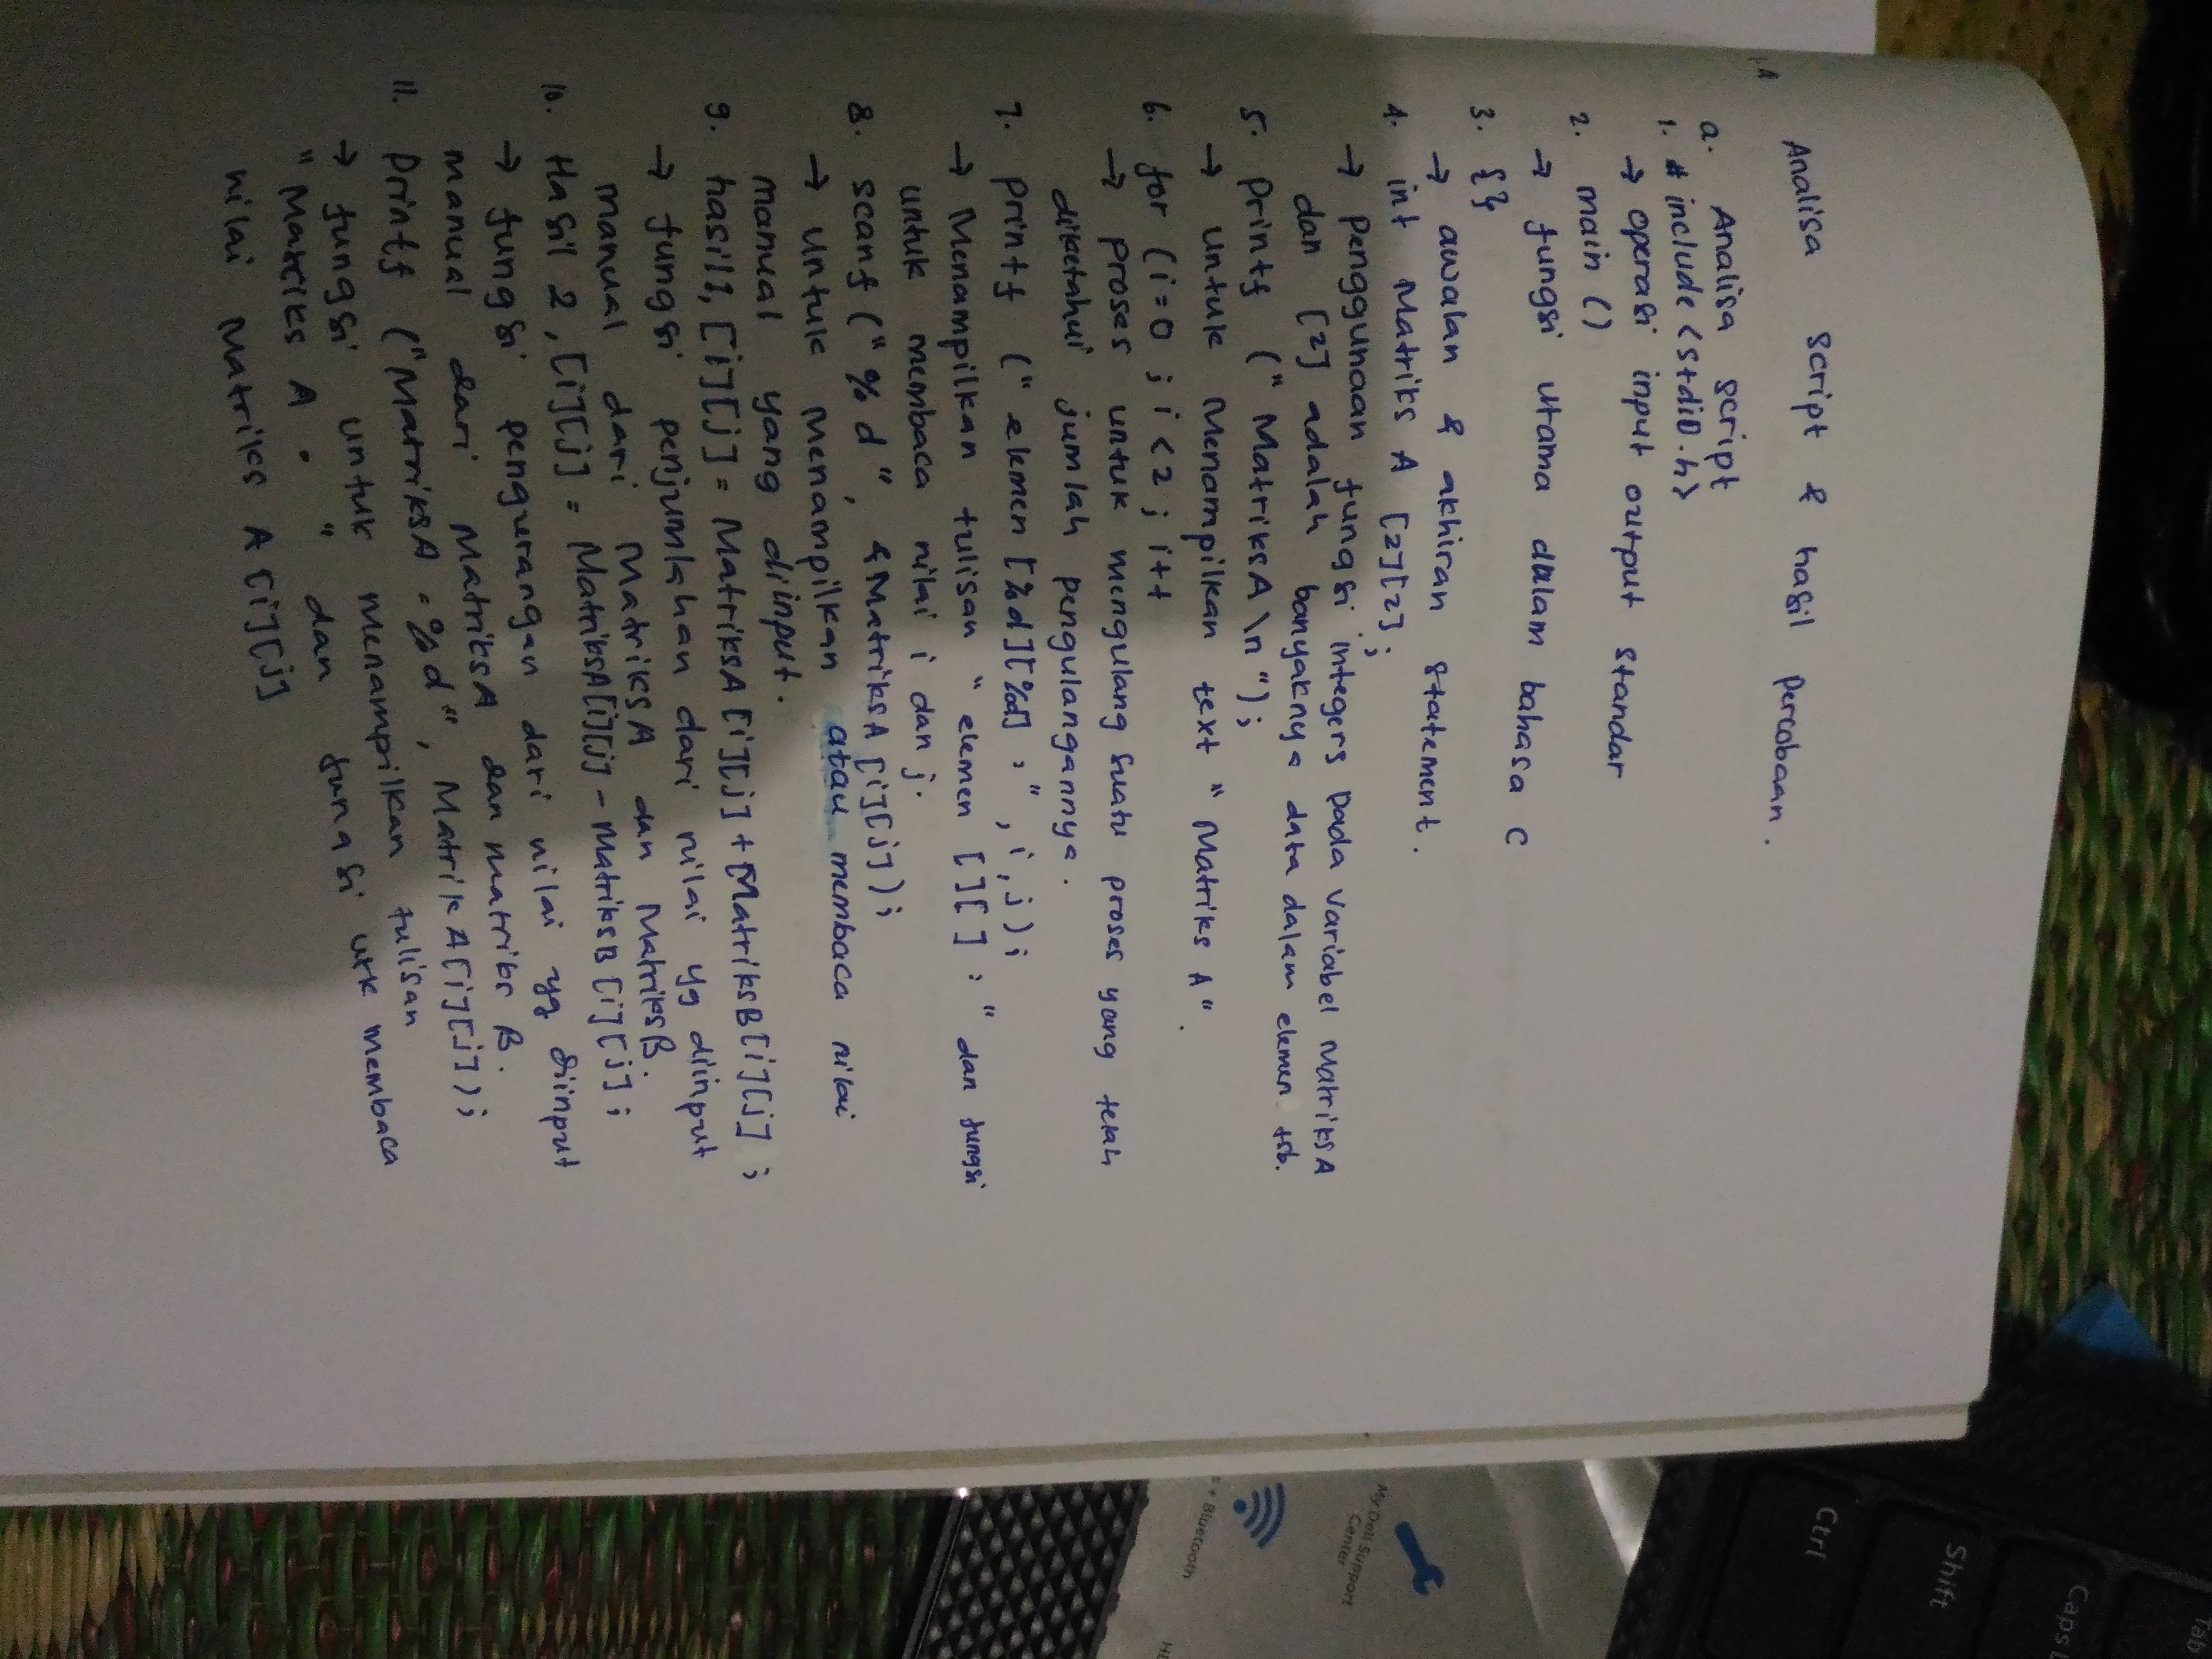 1.A
Analisa script & hasil percobaan.
a. Analisa script
1. # include <stdio.h>
→ operasi input output standar
2. main ()
→ fungsi utama dalam bahasa C
3. {}
→ awalan & akhiran statement.
4. int Matriks A [2][2];
→ penggunaan fungsi integers pada variabel MatriksA
dan [2] adalah banyaknya data dalam elemen tsb.
5. Printf (" MatriksA \n");
→ untuk Menampilkan text " Matriks A".
6. for (i=0 ; i<2 ; i++
→ proses untuk mengulang suatu proses yang telah
diketahui jumlah pengulangannya.
7. printf (" elemen [%d][%d] : ", i,j);
→ Menampilkan tulisan " elemen [ ][ ] : " dan fungsi
untuk membaca nilai i dan j.
8. scanf ("%d", &MatriksA [i][j]);
→ untuk Menampilkan atau membaca nilai
manual yang diinput.
9. hasil1, [i][j] = MatriksA [i][j] + MatriksB[i][j];
→ fungsi penjumlahan dari nilai yg diinput
manual dari MatriksA dan MatriksB.
10. Hasil 2, [i][j] = MatriksA[i][j] - MatriksB[i][j];
→ fungsi pengurangan dari nilai yg diinput
manual dari MatriksA dan matriks B.
11. Printf ("MatriksA : %d", Matrik A[i][j]);
→ fungsi untuk menampilkan tulisan
"Matriks A : " dan fungsi utk membaca
nilai Matriks A [i][j]
My Dell Support
Center
+ Bluetooth
Ctrl
Shift
Caps
Tab